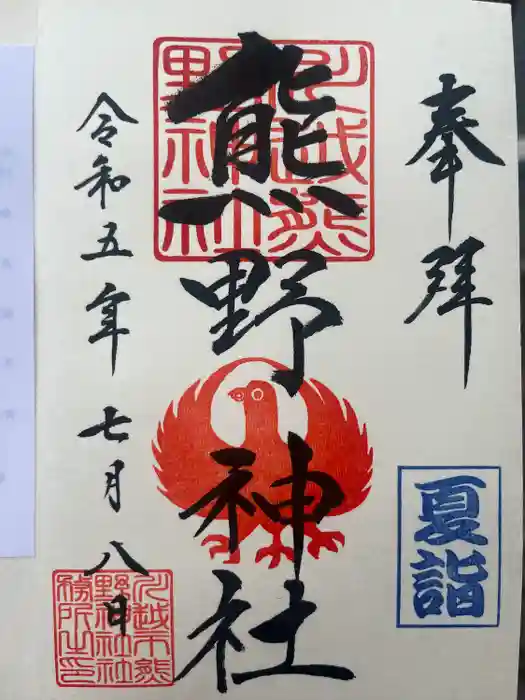 奉拝
夏詣
川越熊
野神社
熊野神社
令和五年七月八日
川越市熊
野神社社
務所之印